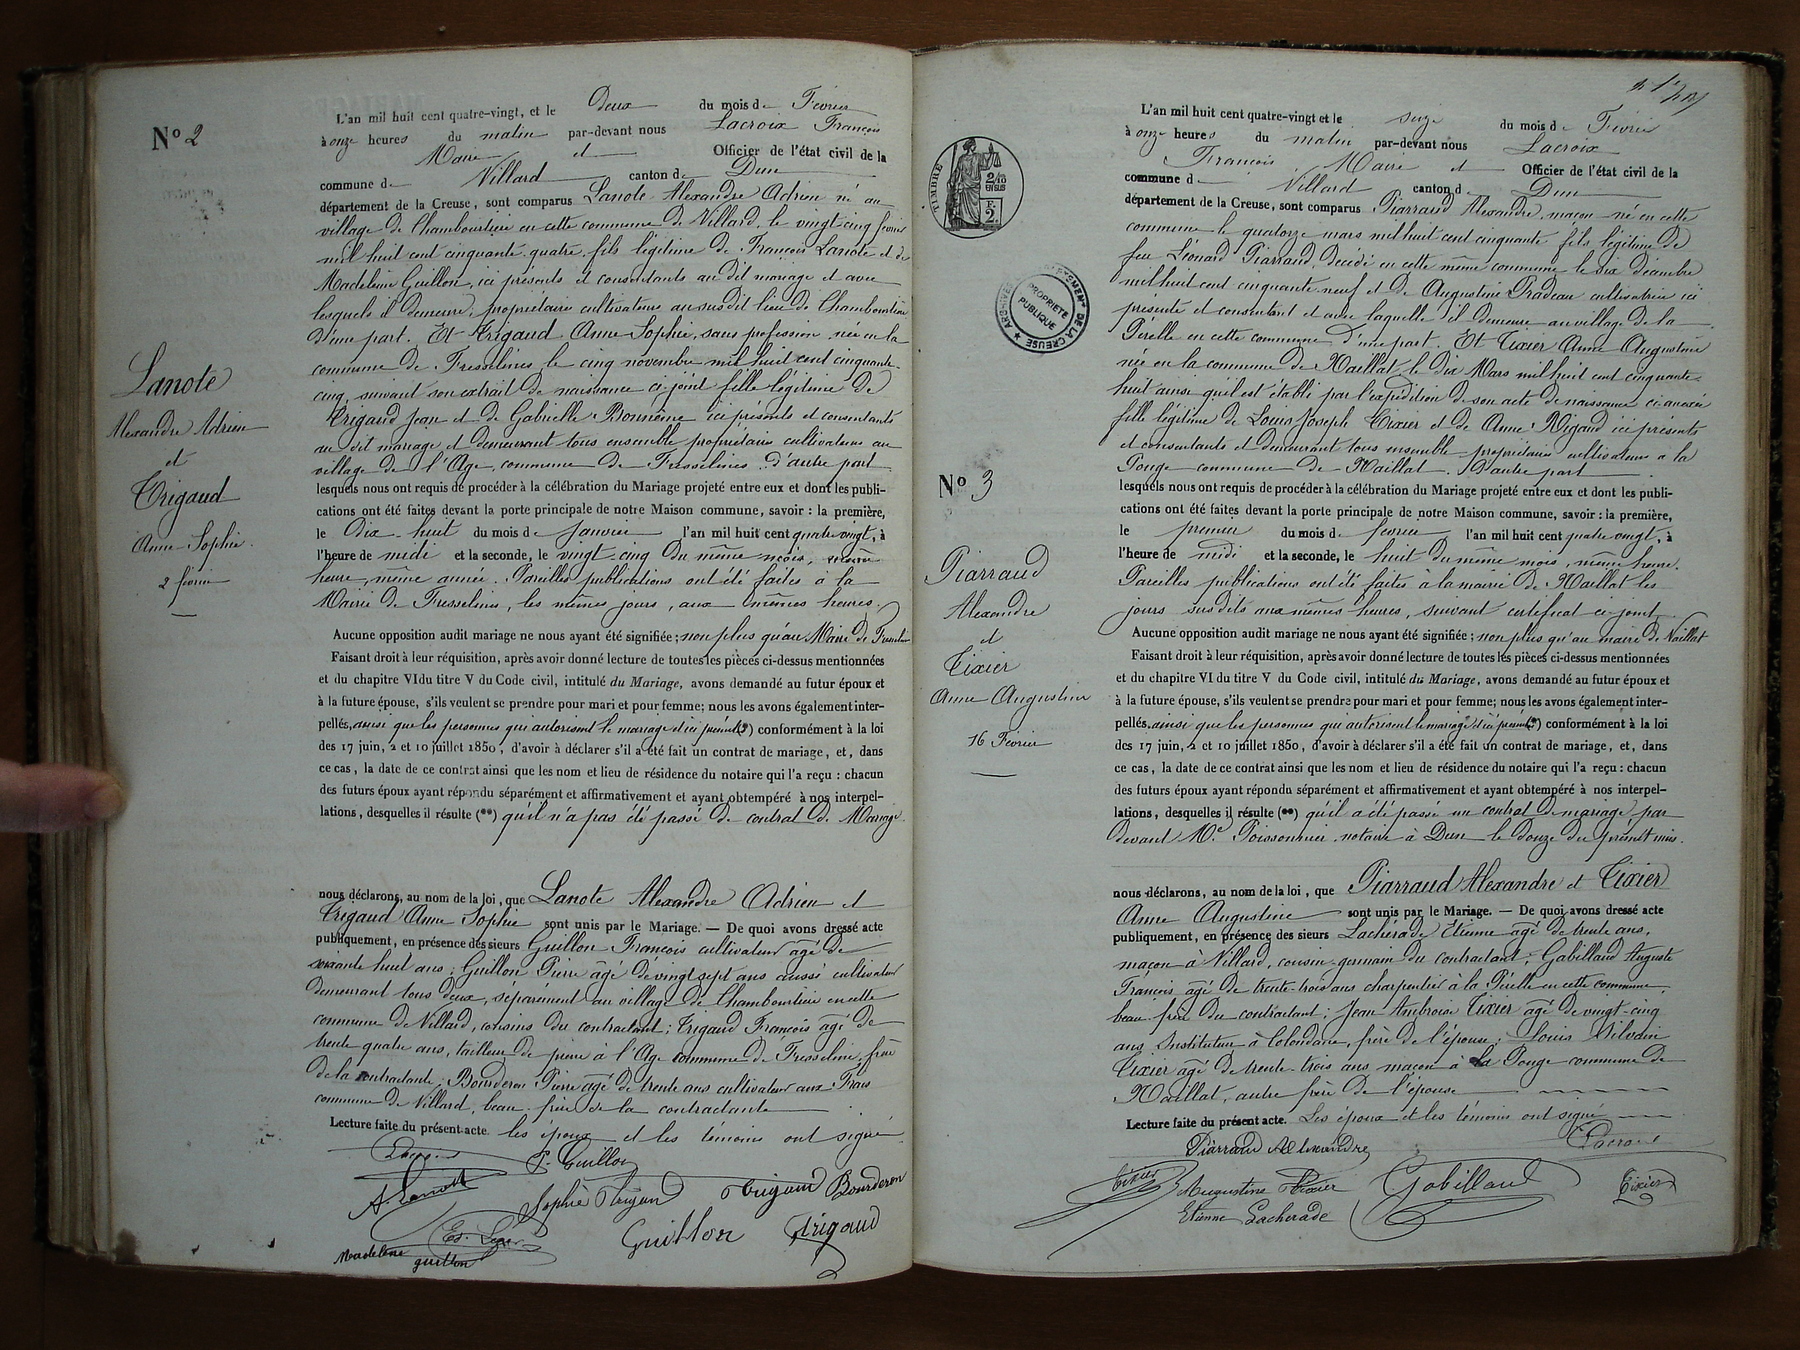 N° 2
L'an mil huit cent quatre-vingt, et le Deux du mois de Février
à onze heures du matin par-devant nous Lacroix François
Maire et Officier de l'état civil de la
commune de Villard canton de Dun
département de la Creuse, sont comparus Lanote Alexandre Adrien né au
village de Chambourtière en cette commune de Villard, le vingt cinq février
mil huit cent cinquante quatre fils légitime de François Lanote et de
Madeleine Guillon, ici présents et consentants au dit mariage et avec
lesquels il demeure, propriétaire cultivateur au susdit lieu de Chambourtière
d'une part. Et Trigaud Anne Sophie, sans profession, née en la
commune de Fresselines, le cinq novembre mil huit cent cinquante-
cinq, suivant son extrait de naissance ci-joint fille légitime de
Trigaud Jean et de Gabrielle ici présents et consentants
au dit mariage et demeurant tous ensemble propriétaire cultivateur au
village de l'Age, commune de Fresselines. d'autre part
lesquels nous ont requis de procéder à la célébration du Mariage projeté entre eux et dont les publi-
cations ont été faites devant la porte principale de notre Maison commune, savoir : la première,
le Dix-huit du mois de Janvier l'an mil huit cent quatre vingt, à
l'heure de midi et la seconde, le vingt-cinq du même mois, même
heure, même année. Pareilles publications ont été faites à la
Mairie de Fresselines, les mêmes jours, aux mêmes heures.
Aucune opposition audit mariage ne nous ayant été signifiée; non plus qu'au Maire de Fresselines
Faisant droit à leur réquisition, après avoir donné lecture de toutes les pièces ci-dessus mentionnées
et du chapitre VI du titre V du Code civil, intitulé du Mariage, avons demandé au futur époux et
à la future épouse, s'ils veulent se prendre pour mari et pour femme; nous les avons également inter-
pellés, ainsi que les personnes qui autorisent le mariage et ici présents (*) conformément à la loi
des 17 juin, 2 et 10 juillet 1850, d'avoir à déclarer s'il a été fait un contrat de mariage, et, dans
ce cas, la date de ce contrat ainsi que les nom et lieu de résidence du notaire qui l'a reçu : chacun
des futurs époux ayant répondu séparément et affirmativement et ayant obtempéré à nos interpel-
lations, desquelles il résulte (**) qu'il n'a pas été passé de contrat de Mariage.
nous déclarons, au nom de la loi, que Lanote Alexandre Adrien et
Trigaud Anne Sophie sont unis par le Mariage. — De quoi avons dressé acte
publiquement, en présence des sieurs Guillon François cultivateur âgé de
soixante huit ans; Guillon Pierre âgé de vingt sept ans aussi cultivateur
demeurant tous deux, séparément au village de Chambourtière en cette
commune de Villard, cousins du contractant; Trigaud François âgé de
trente quatre ans, tailleur de pierre à l'Age commune de Fresselines, frère
de la contractante; Bourderon Pierre âgé de trente ans cultivateur aux
commune de Villard, beau-frère de la contractante
Lecture faite du présent acte. les époux et les témoins ont signé
Lacroix P. Guillon
A. Lanote Sophie Trigaud Trigaud Bourderon
Guillon Trigaud
Madelene
guillon
Lanote
Alexandre Adrien
et
Trigaud
Anne-Sophie.
2 février
L'an mil huit cent quatre-vingt et le seize du mois de Février
à onze heures du matin par-devant nous Lacroix
François Maire et Officier de l'état civil de la
commune de Villard canton de Dun
département de la Creuse, sont comparus Piarraud Alexandre, maçon né en cette
commune le quatorze mars mil huit cent cinquante fils légitime de
feu Léonard Piarraud, décédé en cette même commune le dix décembre
mil huit cent cinquante-neuf et de Augustine Pradeau cultivatrice ici
présente et consentant et avec laquelle il demeure au village de la
Pérelle en cette commune d'une part. Et Tixier Anne Augustine
née en la commune de Naillat le dix Mars mil huit cent cinquante-
huit ainsi qu'il est établi par l'expédition de son acte de naissance ci-annexée
fille légitime de Louis Joseph Tixier et de Anne Rigaud ici présents
et consentants et demeurant tous ensemble propriétaire cultivateurs a la
Pouge commune de Naillat. D'autre part
lesquels nous ont requis de procéder à la célébration du Mariage projeté entre eux et dont les publi-
cations ont été faites devant la porte principale de notre Maison commune, savoir : la première,
le premier du mois de février l'an mil huit cent quatre vingt, à
l'heure de midi et la seconde, le huit du même mois, même heure.
Pareilles publications ont été faites à la mairie de Naillat les
jours susdits aux mêmes heures, suivant certificat ci-joint
Aucune opposition audit mariage ne nous ayant été signifiée; non plus qu'au maire de Naillat
Faisant droit à leur réquisition, après avoir donné lecture de toutes les pièces ci-dessus mentionnées
et du chapitre VI du titre V du Code civil, intitulé du Mariage, avons demandé au futur époux et
à la future épouse, s'ils veulent se prendre pour mari et pour femme; nous les avons également inter-
pellés, ainsi que les personnes qui autorisent le mariage et ici présents (*) conformément à la loi
des 17 juin, 2 et 10 juillet 1850, d'avoir à déclarer s'il a été fait un contrat de mariage, et, dans
ce cas, la date de ce contrat ainsi que les nom et lieu de résidence du notaire qui l'a reçu : chacun
des futurs époux ayant répondu séparément et affirmativement et ayant obtempéré à nos interpel-
lations, desquelles il résulte (**) qu'il a été passé un contrat de mariage par
devant Me Poissonnier, notaire à Dun le douze du présent mois.
nous déclarons, au nom de la loi, que Piarraud Alexandre et Tixier
Anne Augustine sont unis par le Mariage. — De quoi avons dressé acte
publiquement, en présence des sieurs Lacherade Etienne âgé de trente ans,
maçon à Villard, cousin-germain du contractant; Gabillaud Auguste
François âgé de trente-trois ans charpentier à la Pérelle en cette commune,
beau-frère du contractant; Jean Ambroise Tixier âgé de vingt-cinq
ans Instituteur à Colondane, frère de l'épouse; Louis Silvain
Tixier âgé de trente-trois ans maçon à la Pouge commune de
Naillat, autre frère de l'épouse
Lecture faite du présent acte. Les époux et les témoins ont signé
Piarraud Alexandre Lacroix
Tixier Augustine Tixier Gabillaud Tixier
Etienne Lacherade
TIMBRE
2/10
EN SUS
F.
2.
ARCHIVES DEPARTEMENT DE LA CREUSE
PROPRIETE
PUBLIQUE
N° 3
Piarraud
Alexandre
et
Tixier
Anne-Augustine
16 Février